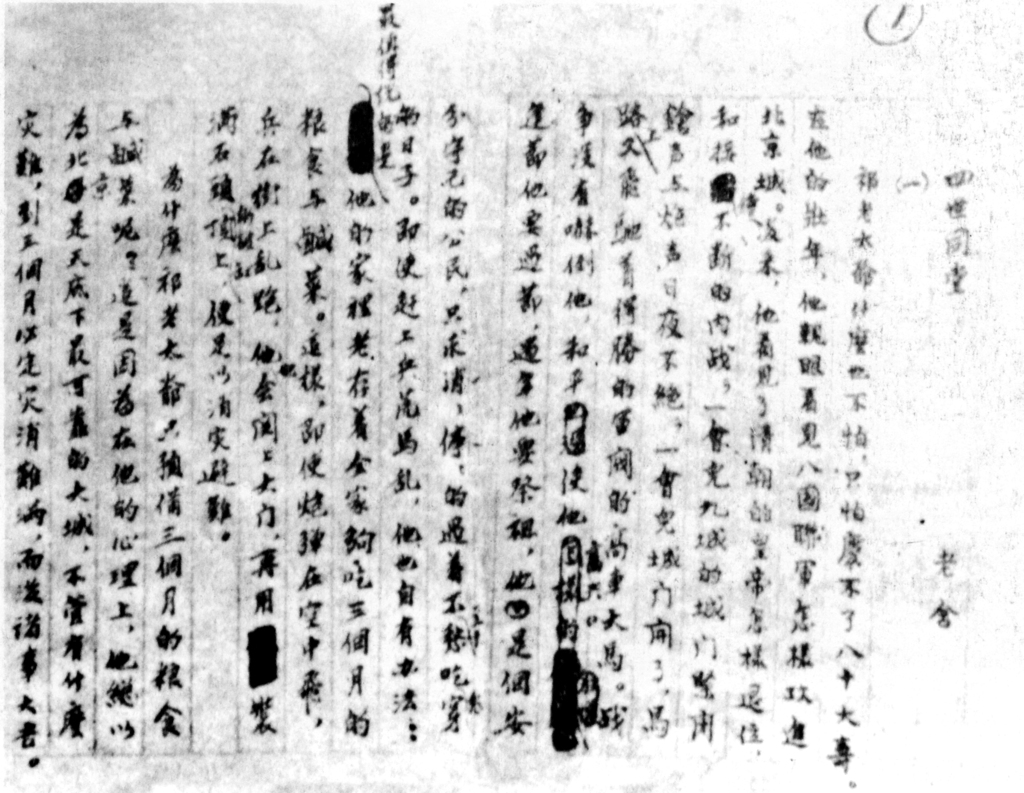 1
四世同堂
老舍
(一)
祁老太爺什麼也不怕，只怕慶不了八十大壽。
在他的壯年，他親眼看見八國聯軍怎樣攻進
北京城。後來，他看見了清朝的皇帝怎樣退位，
和接不斷的內战；一會兒九城的城门緊閉
鎗声与炮声日夜不絕；一會兒城门開了，馬
路上又飛馳着得勝的軍閥的高車大馬。战
爭沒有嚇倒他，和平使他高兴。
逢節他要過節，過年他要祭祖，他是個安
分守己的公民，只求消消停停的過着不愁吃穿
的日子。即使赶上兵荒馬乱，他也自有办法：
最值得他的是
他的家裡老存着全家夠吃三個月的
粮食与鹹菜。這樣，即使炮彈在空中飛，
兵在街上乱跑，他也会関上大门，再用裝
滿石頭的破缸頂上，便足以消灾避難。
為什麼祁老太爺只預備三個月的粮食
与鹹菜呢？這是因為在他的心理上，他總以
為北京是天底下最可靠的大城，不管有什麼
灾難，到三個月必定灾消難滿，而後諸事大吉。